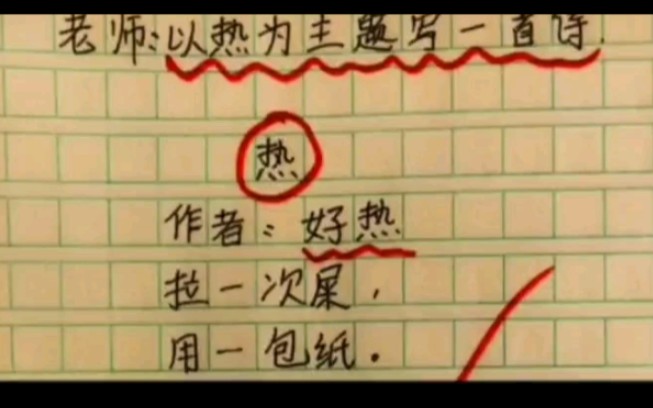 老师:以热为主题写一首诗.
热
作者:好热
拉一次屎，
用一包纸。